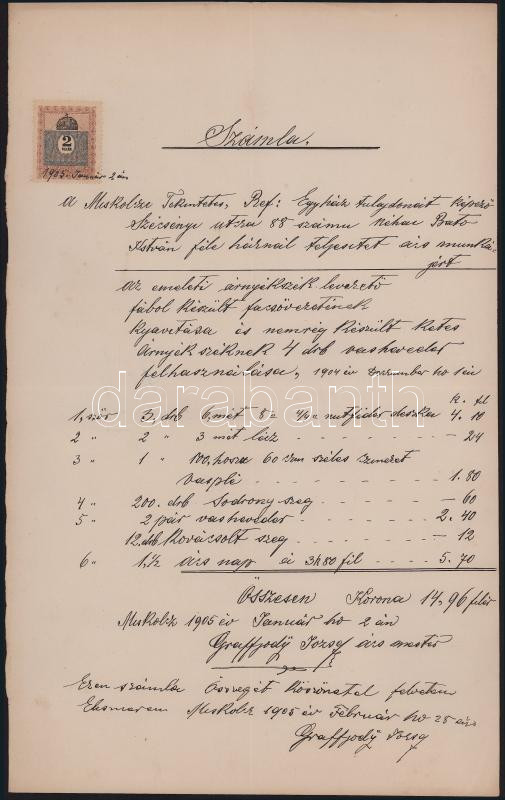 Számla.
2
1905. Január 2án
A Miskolcze Tekintetes, Ref: Egyház tulajdonát képező
Szécsényi utsza 88 számu néhai Bató
István féle háznál teljesitet ács munká
járt
Az emeleti árnyékszék levezető
fából készült facsövezetének
kyavetása és nemrég készült ketes
árnyék széknek 4 drb vashaveder
felhasználása, 1904 év Deczember hó
k. fl
1, ször 3, drb 6 mét 4. 10
2 " 2 " 3 mét láz - 24
3 " 1 " 100, hosu 60 széles
vasplé 1.80
4 " 200. drb Sodrony szeg - 60
5 " 2 pár vashaveder 2. 40
12. drb Kovácsolt szeg - 12
6 " 1, 1/2 ács nap á 3k 80 fil 5. 70
Összesen Korona 14, 96 fillér
Miskolcz 1905 év Január hó 2 án
Graffjódy Jozsef ács mester
Ezen számla Összegét Köszönetel felvetem
Elismerem Miskolcz 1905 év Február hó 28 án
Graffjódy Jozsef
darabanth